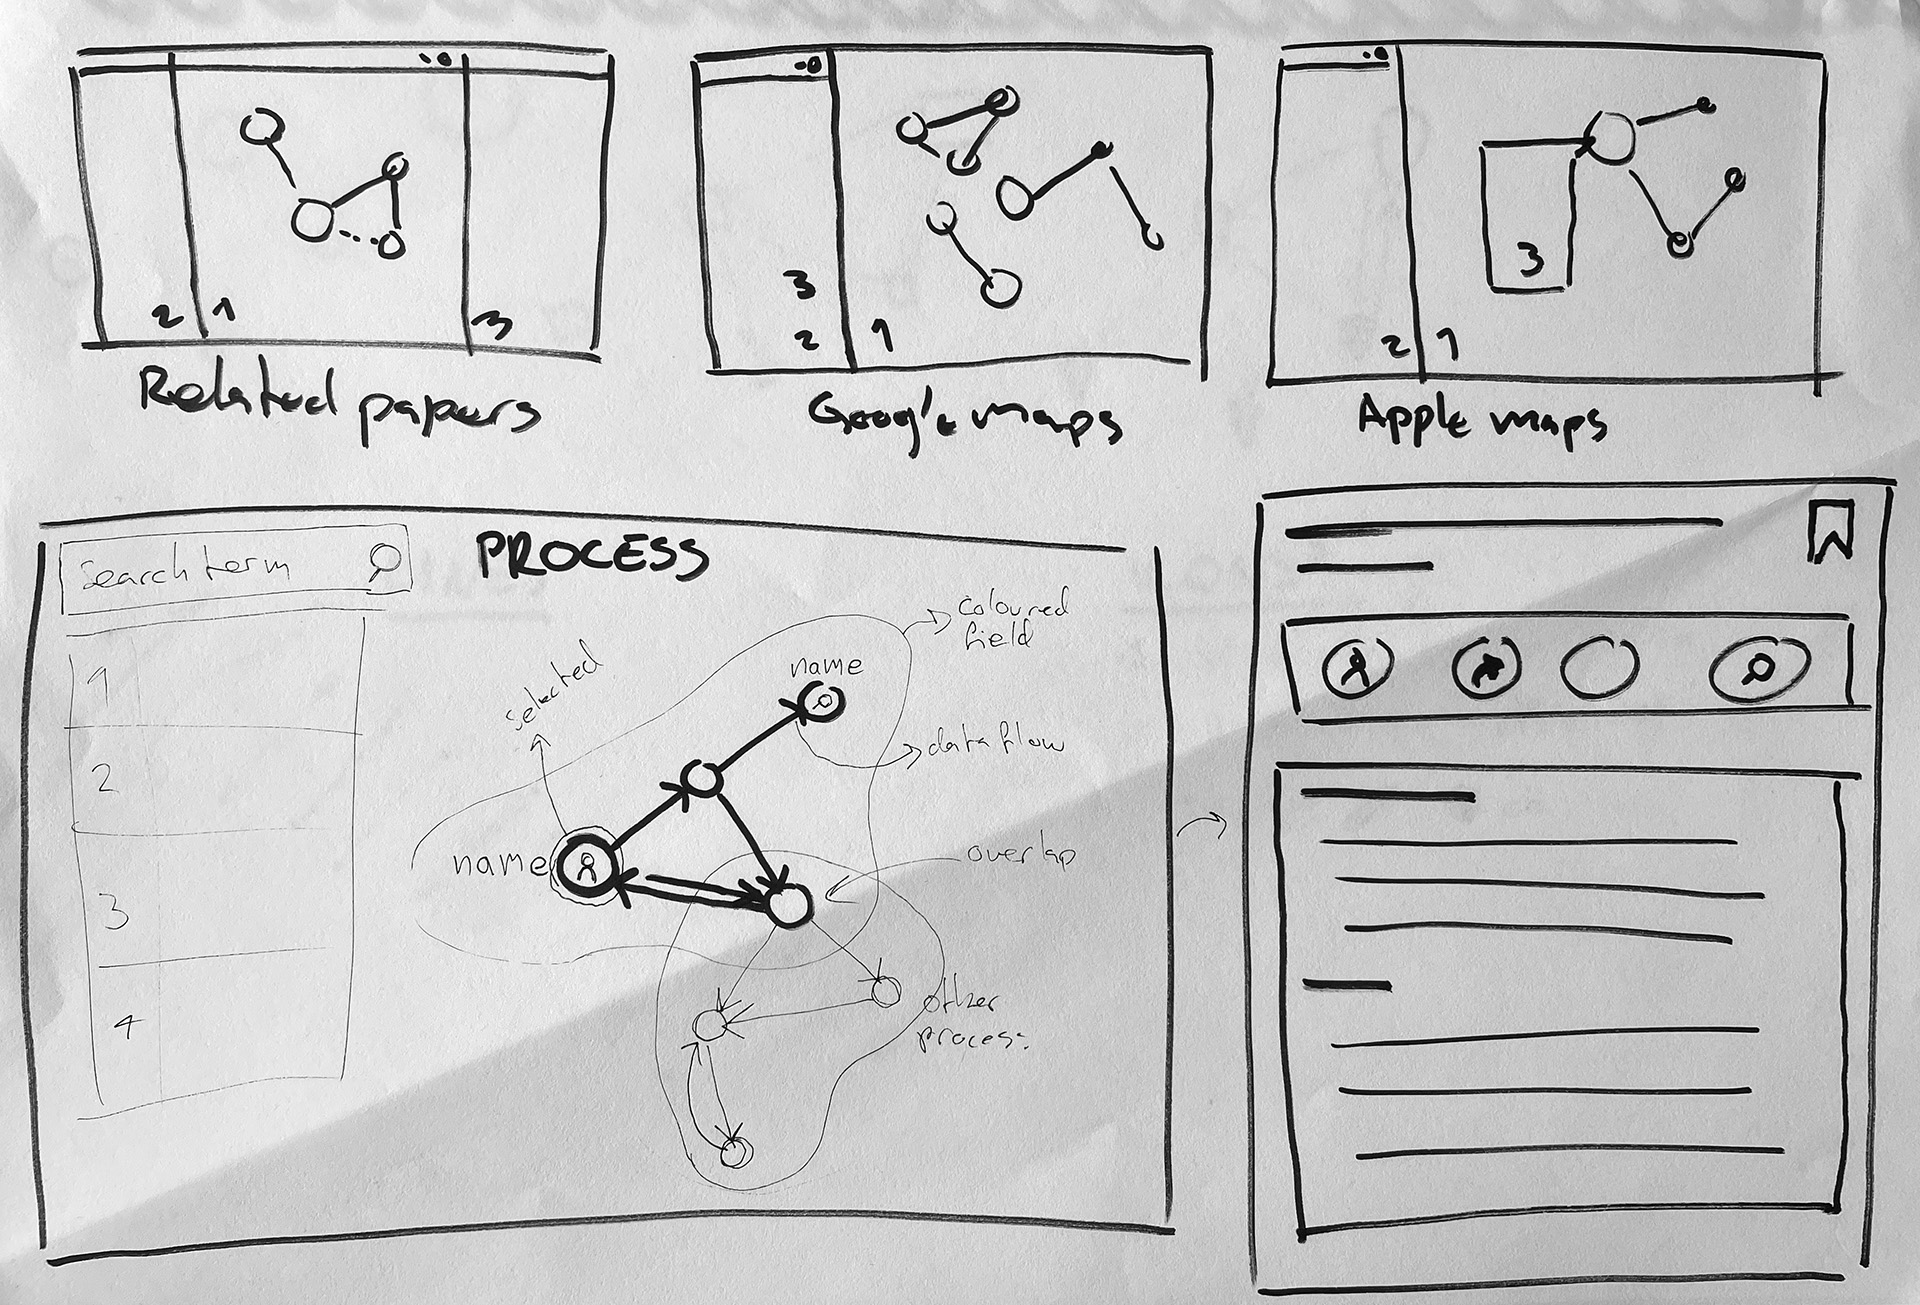 2 1
3
Related papers
3
2 1
Google maps
3
2 1
Apple maps
Search term
PROCESS
1
2
3
4
Selected
name
name
Coloured
field
data flow
overlap
other
process.